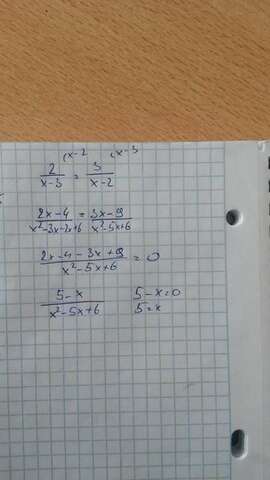 (x-2 (x-3
2/(x-3) = 3/(x-2)
(2x-4)/(x²-3x-2x+6) = (3x-9)/(x²-5x+6)
(2x-4-3x+9)/(x²-5x+6) = 0
(5-x)/(x²-5x+6) 5-x=0
5=x